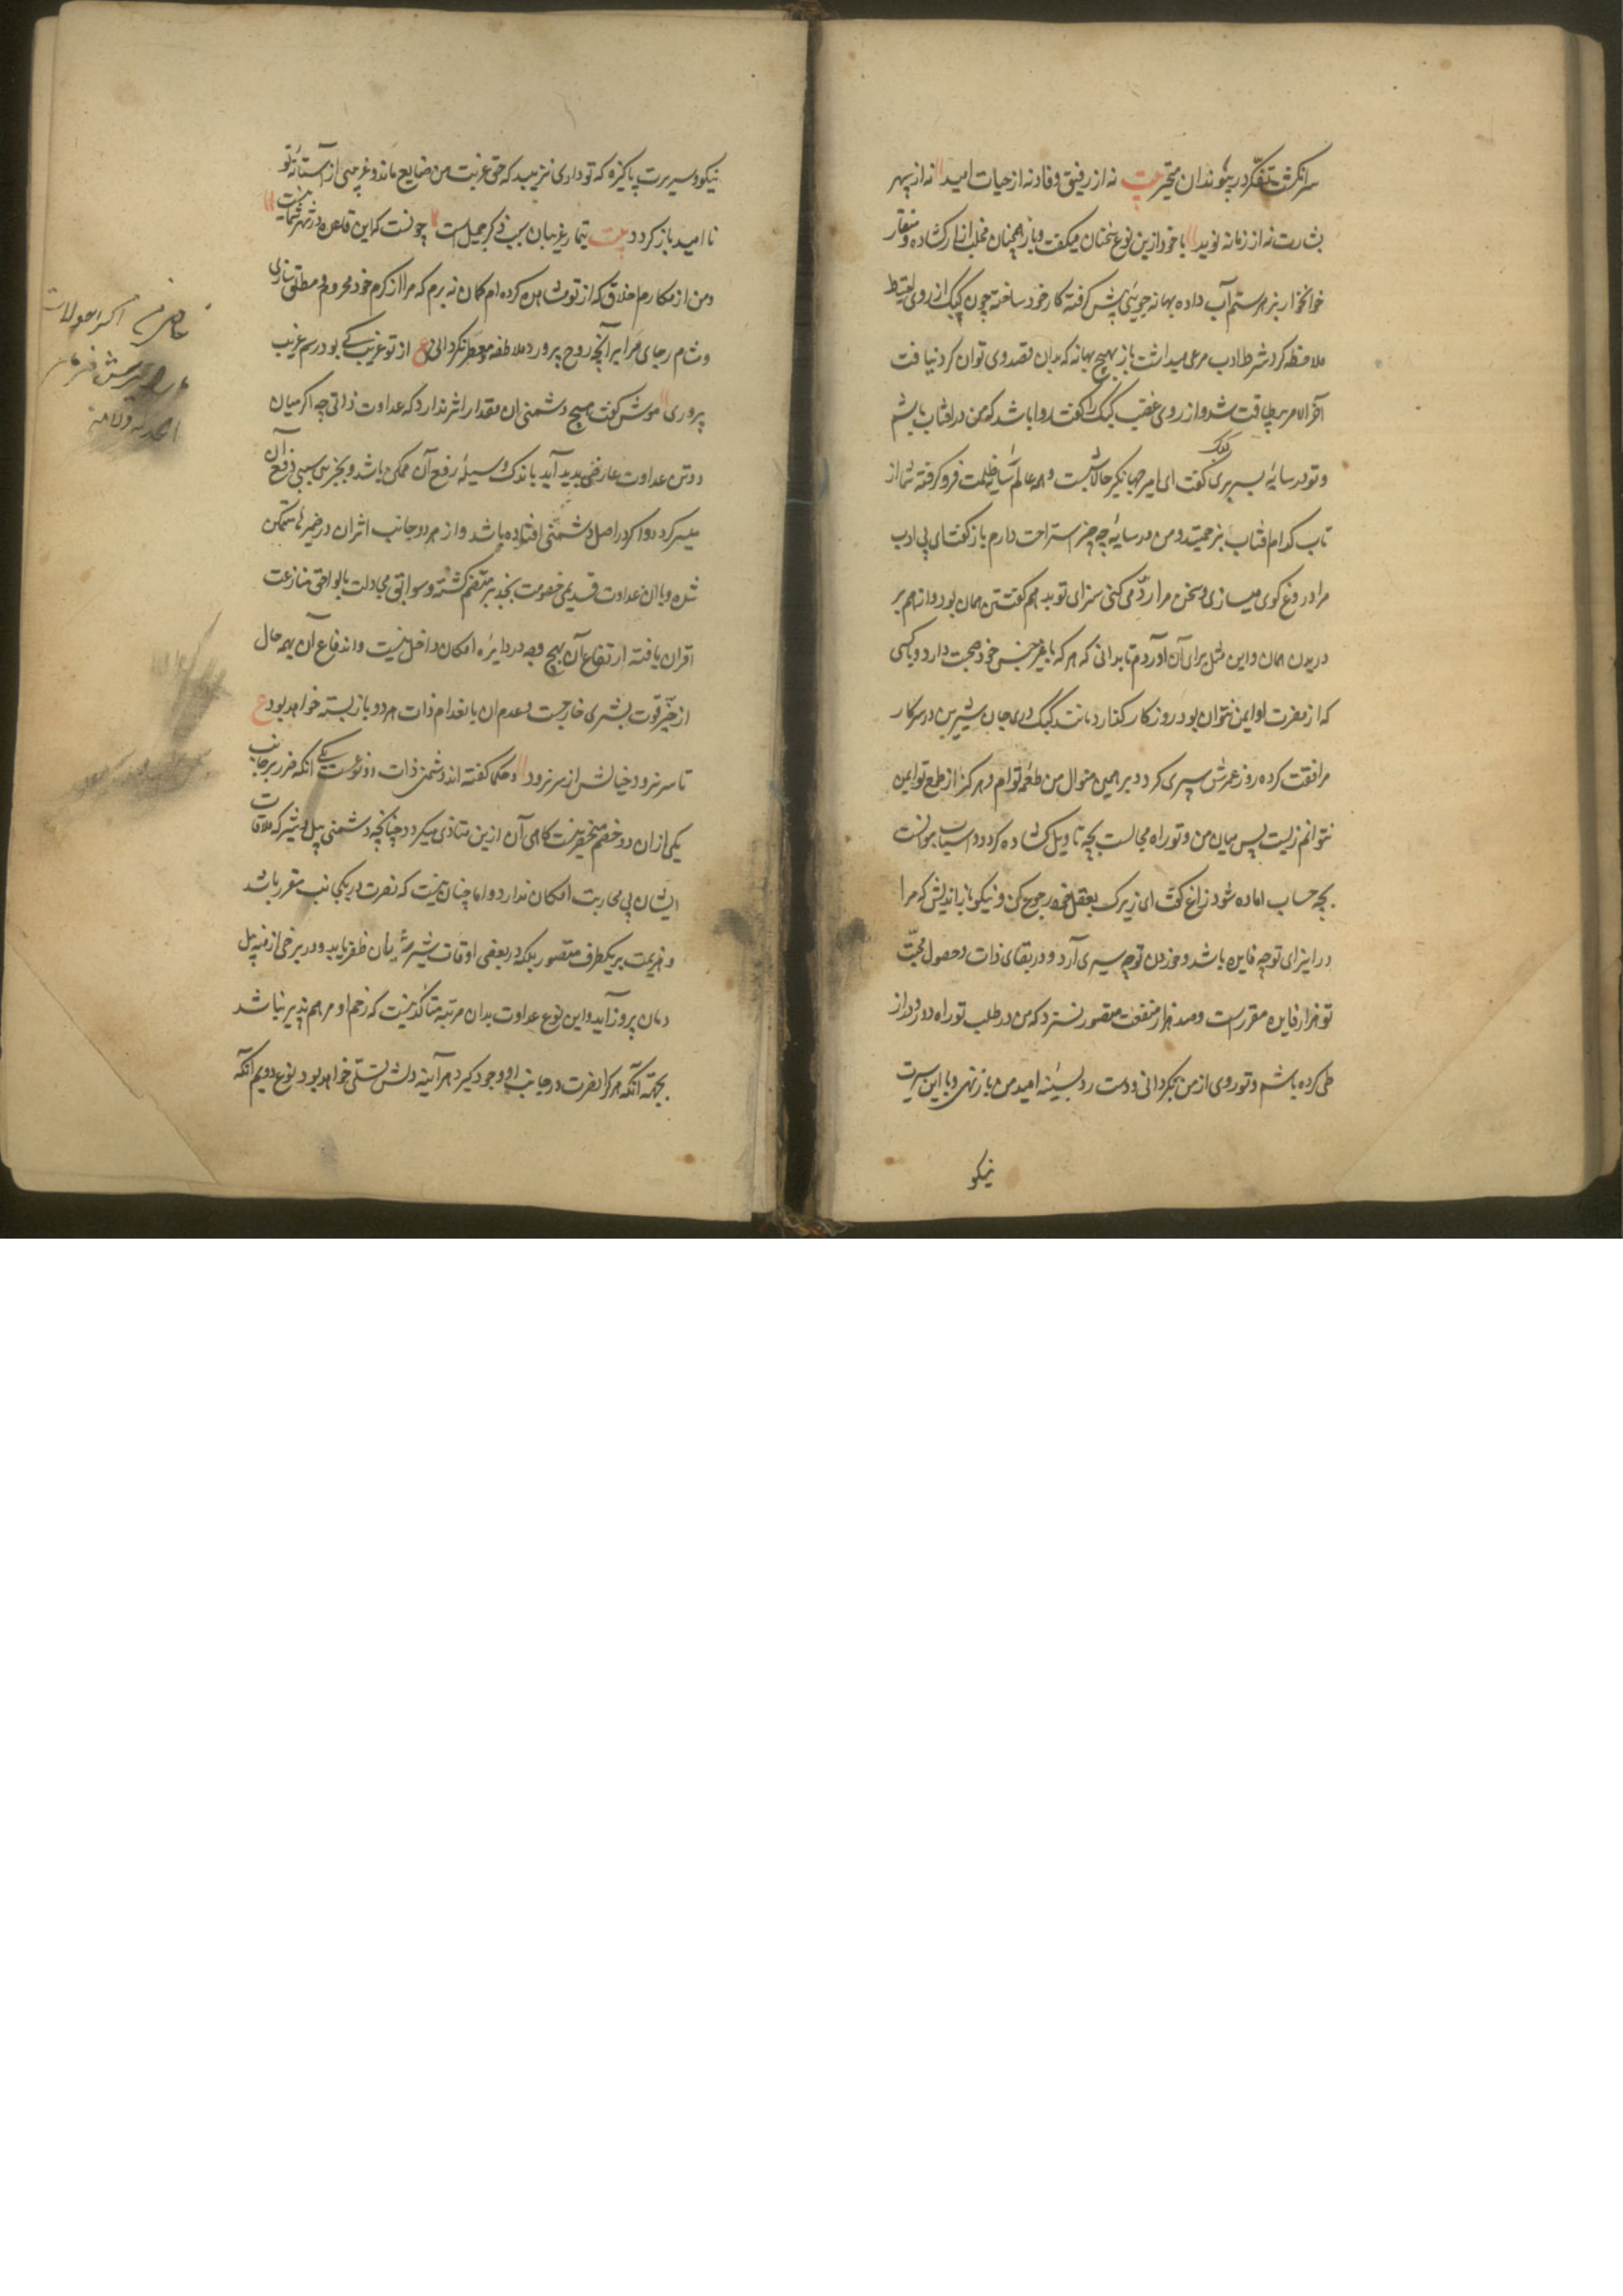 سرانگشت تفکر در پیوندان متحیر بیت نه از رفیق وفا و نه از حیات امید نه از سپهر
بشارت نه از زمانه نوید با خود ازین نوع سخنان میگفت و باز همچنان مخلب ازار کشاده و منقار
خونخوار بزهر ستم آب داده بهانه جوئی پیش گرفته کار خود ساخته چون کبک از روی احتیاط
ملاحظه کرد شرط ادب مرعی میداشت باز بهیچ بهانه که بدان قصد وی توان کرد نیافت
آخر الامر بیطاقت شد و از روی غضب کبک را گفت روا باشد که من در افتاب باشم
و تو در سایه بسر بری کبک گفت ای امیر جهانگیر حالا شبست و همه عالم سایه ظلمت فرو گرفته شما از
تاب کدام افتاب بزحمتید و من در سایه چه چیز استراحت دارم باز گفت ای بی ادب
مرا دروغ گوی میسازی و سخن مرا رد می کنی سزای تو بدهم گفتن همان بود و از هم بر
دریدن همان و این مثل برای آن آوردم تا بدانی که هر که با غیر جنس خود صحبت دارد و با کسی
که از مضرت او ایمن نتوان بود روزگار گذارد مانند کبک دری جان شیرین در سر کار
مرافقت کرده روز عمرش سپری گردد و بر همین منوال من طعمه توام و هرگز از طمع تو ایمن
نتوانم زیست پس میان من و تو راه مجالست بچه تاویل کشاده گردد و اسباب موانست
بچه حساب اماده شود زاغ گفت ای زیرک بعقل خود رجوع کن و نیکو باز اندیش که مرا
در ایذای تو چه فایده باشد و خوردن تو چه سیری آرد و در بقای ذات و حصول محبت
تو هزار فایده مقررست و صد هزار منفعت متصور نسزد که من در طلب تو راه دور و دراز
طی کرده باشم و تو روی از من بگردانی و دست رد بسینه امید من باز نهی و با این سیرت
نیکو
نیکو و سریرت پاکیزه که تو داری نزیبد که حق غربت من ضایع ماند و غریبی از آستانه تو
نا امید باز گردد بیت تیمار غریبان سبب ذکر جمیل است چونست که این قاعده در شهر شما نیست
و من از مکارم اخلاق که از تو مشاهده کرده ام گمان نه برم که مرا از کرم خود محروم مطلق سازی
و مشام رجای مرا برایحه روح پرور ملاطفه معطر نگردانی ع از تو غریب کی بود رسم غریب
پروری موش گفت هیچ دشمنی ان مقدار اثر ندارد که عداوت ذاتی چه اگر میان
دو تن عداوت عارضی پدید آید باندک وسیله رفع آن ممکن باشد و بجزئی سببی دفع آن
میسر گردد و اگر در اصل دشمنی افتاده باشد و از هر دو جانب اثر ان در ضمیر ها متمکن
شده و با ان عداوت قدیمی خصومت جدید بر منضم گشته و سوابق مجادلت بالواحق منازعت
اقران یافته ارتفاع آن بهیچ وجه در دایره امکان داخل نیست و اندفاع آن بهمه حال
از حیز قوت بشری خارجست و عدم ان بانعدام ذات هر دو باز بسته خواهد بود ع
تا سر نرود خیالش از سر نرود و حکما گفته اند دشمنی ذات دو نوعست یکی انکه ضرر بر جانب
یکی از ان دو خصم منحصر نیست گاهی آن ازین متاذی میگردد چنانچه دشمنی پیل و شیر که ملاقات
ایشان بی محاربت امکان ندارد و اما چنان نیست که نصرت در یکجانب مقرر باشد
و هزیمت بر یکطرف متصور بلکه در بعضی اوقات شیر ژیان ظفر یابد و در برخی ازمنه پیل
دمان پیروز آید و این نوع عداوت بدان مرتبه متاکد نیست که زخم او مرهم پذیر نباشد
بجهته آنکه هر گرا نصرت در جانب او وجود گیرد هر آینه دلش تسلی خواهد بود نوع دویم انکه